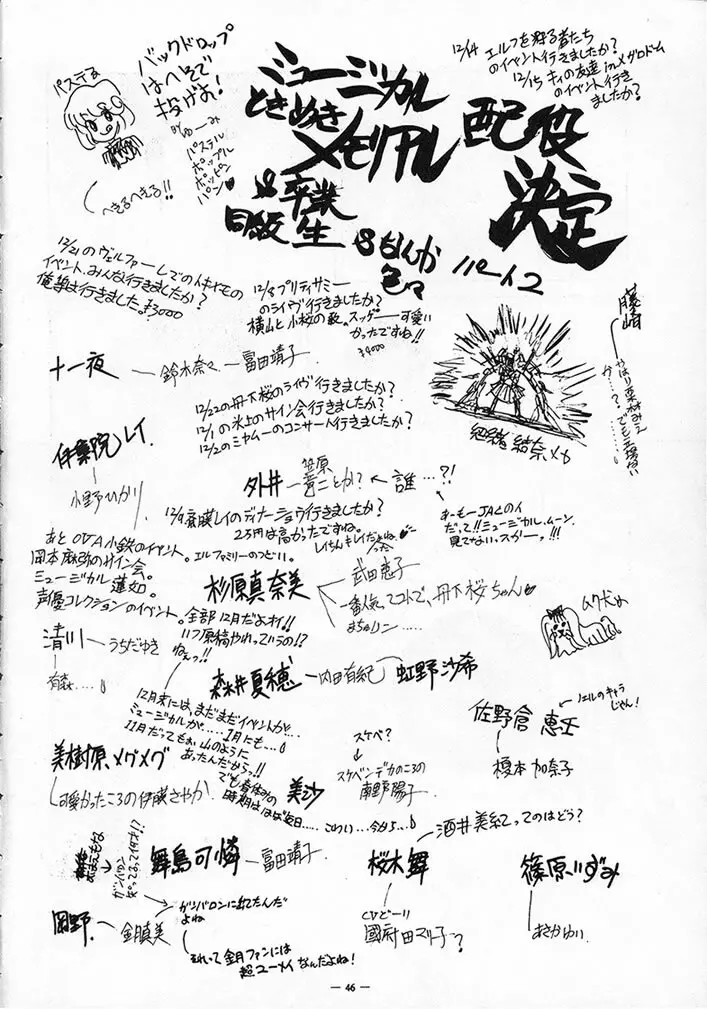 パステる
バックドロップ
はへそで
投げろ!
パステル
ポップル
ポッピン
パン
へきるへきる!!
ミュージカル
ときめき
メモリアル
配役
決定
& 卒業
同級生
&なんか
色々
パート2
12/14 エルフを狩る者たち
のイベント行きましたか?
12/15
の友達 in メグロドーム
のイベント行き
ましたか?
12/21のヴェルファーレでの
イベント、みんな行きましたか?
俺達は行きました。¥3000
12/8 プリティサミー
のライヴ行きましたか?
横山と小桜の歌。スッゲー可愛い
かったですね!!
¥4000
藤崎
やはり栗林みえ
か……?でも立場ない
……
十一夜
鈴木奈々―富田靖子
12/22の丹下桜のライヴ行きましたか?
12/1の氷上のサイン会行きましたか?
12/2のミャムーのコンサート行きましたか?
伊集院レイ
小野ひかり
紐緒結奈メカ
外井
笠原
一青ことか? ← 誰…?!
あーもーJACのイ
だって!!ミュージカル、ムーン
見てない。スカーッ!!!
12/9 斎藤レイのディナーショウ行きましたか?
2万円は高かったですね。
あとOVA小鉄のイベント。エルファミリーのつどい。
岡本麻弥のサイン会。
ミュージカル蓮如。
声優コレクションのイベント。全部12月だよオイ!!
いつ原稿やれっていうの!?
ねぇっ!!
杉原真奈美
武田恵子
一番人気、てコトで、丹下桜ちゃん
まちゅリン……
ムク犬
清川―うちだゆき
有森……
森井夏穂―内田有紀
虹野沙希
12月末には、まだまだイベントが…
ミュージカルが……1月にも…
11月だってもぉ山のように
あったんだからっ!!
でも春休みの
時期はほぼ毎日……こわい…今から…
佐野倉恵壬
ノエルのキャラ
じゃん!
榎本加奈子
美樹原、メグメグ
可愛かったころの伊藤さやか
美沙
スケベ?
スケベンデカのころの
南野陽子
舞島可憐―富田靖子
ガンバロン
桜木舞
酒井美紀ってのはどう?
CVどーり
國府田マリ子?
篠原いずみ
あさかゆい
岡野―金月真美
ガンバロンに出てたんだ
よね
それって金月ファンには
超ユーメイなんだよね!
— 46 —